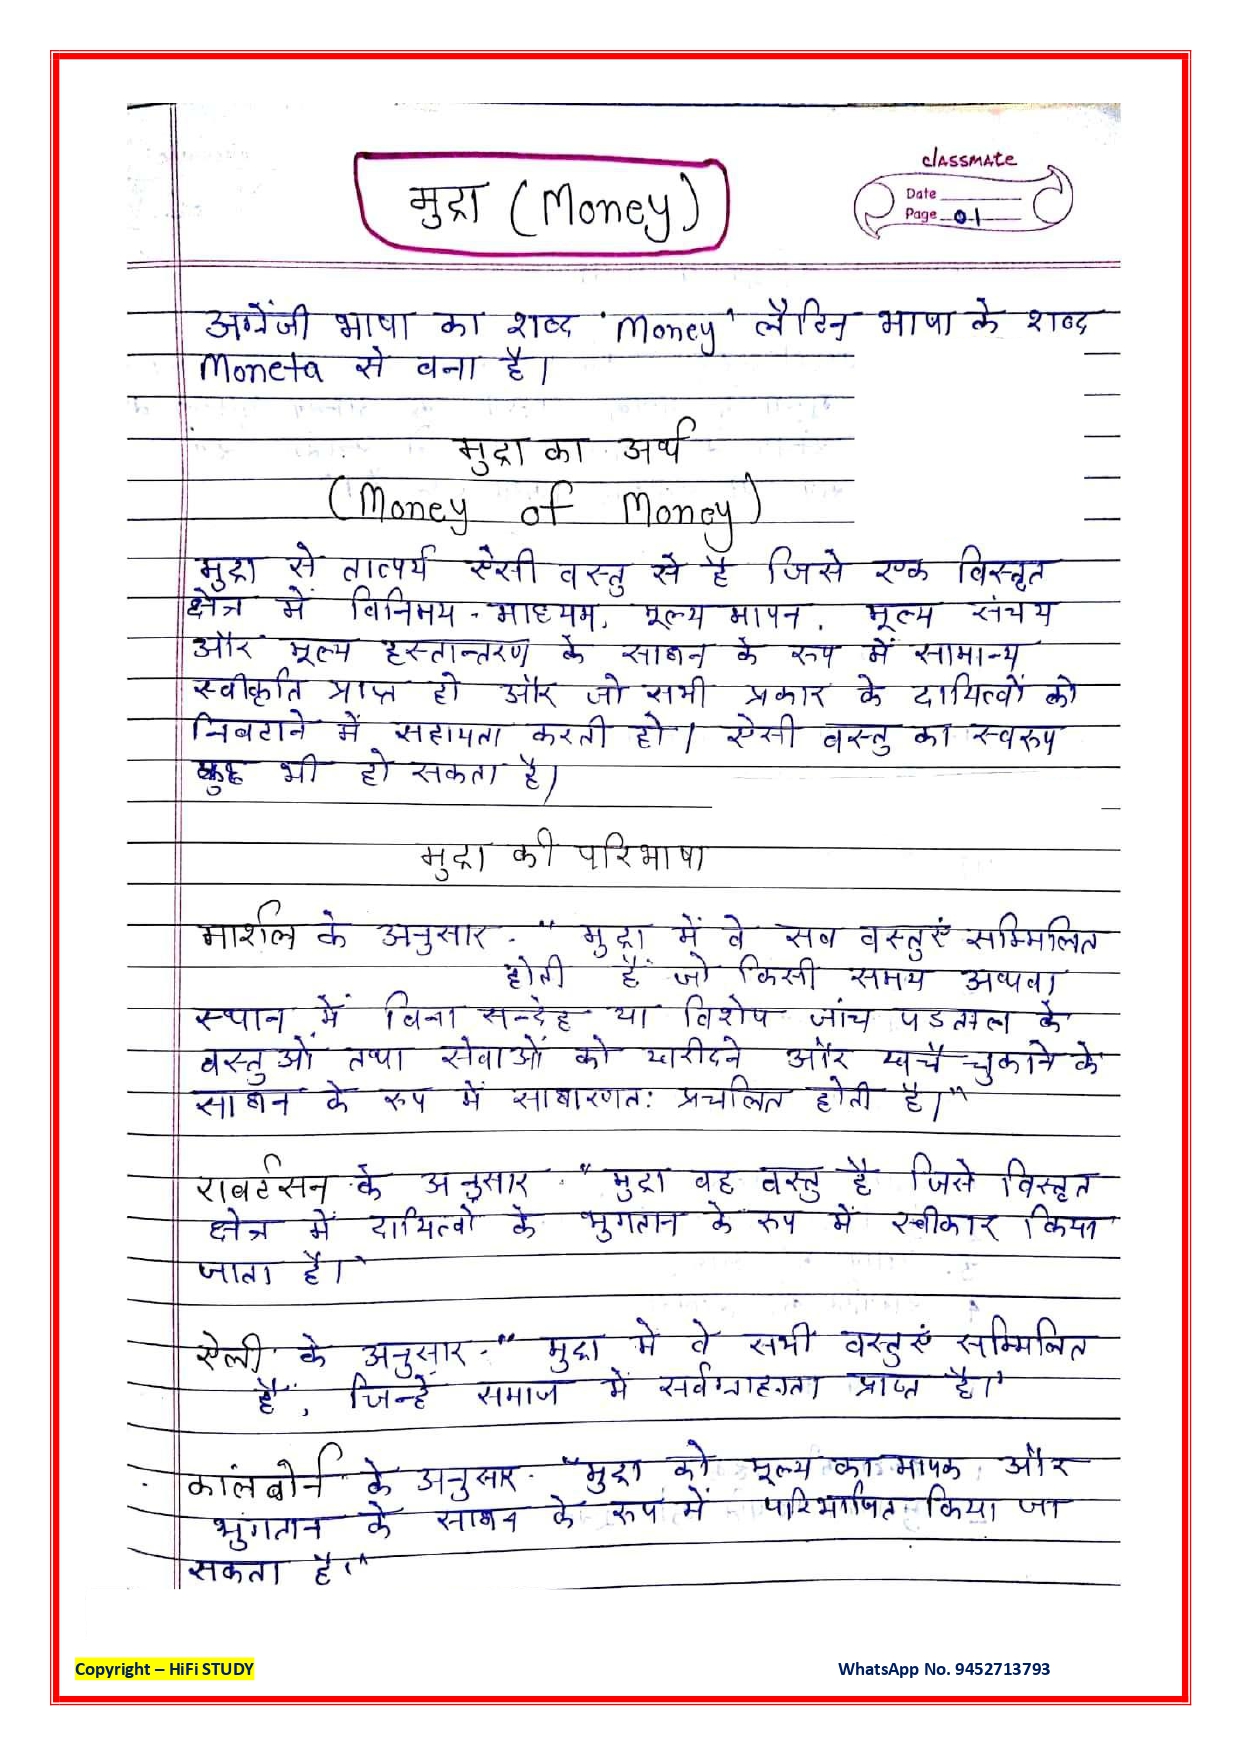 मुद्रा (Money)
classmate
Date
Page 01
अंग्रेंजी भाषा का शब्द 'Money' लैटिन भाषा के शब्द
Moneta से बना है।
मुद्रा का अर्थ
(Money of Money)
मुद्रा से तात्पर्य ऐसी वस्तु से है जिसे एक विस्तृत
क्षेत्र में विनिमय - माध्यम, मूल्य मापन, मूल्य संचय
और मूल्य हस्तान्तरण के साधन के रुप में सामान्य
स्वीकृति प्राप्त हो और जो सभी प्रकार के दायित्वों को
निबटाने में सहायता करती हो। ऐसी वस्तु का स्वरुप
कुछ भी हो सकता है।
मुद्रा की परिभाषा
मार्शल के अनुसार - " मुद्रा में वे सब वस्तुएं सम्मिलित
होती हैं जो किसी समय अथवा
स्थान में बिना सन्देह या विशेष जांच पडताल के
वस्तुओं तथा सेवाओं को खरीदने और खर्चे चुकाने के
साधन के रुप में साधारणत: प्रचलित होती है।"
राबर्टसन के अनुसार - "मुद्रा वह वस्तु है जिसे विस्तृत
क्षेत्र में दायित्वो के भुगतान के रुप में स्वीकार किया
जाता है।"
ऐली के अनुसार - " मुद्रा मे वे सभी वस्तुएं सम्मिलित
हैं, जिन्हें समाज में सर्वग्राहयता प्राप्त है।"
कालबोर्न के अनुसार - "मुद्रा को मूल्य का मापक और
भुगतान के साधन के रुप में परिभाषित किया जा
सकता है।"
Copyright – HiFi STUDY
WhatsApp No. 9452713793